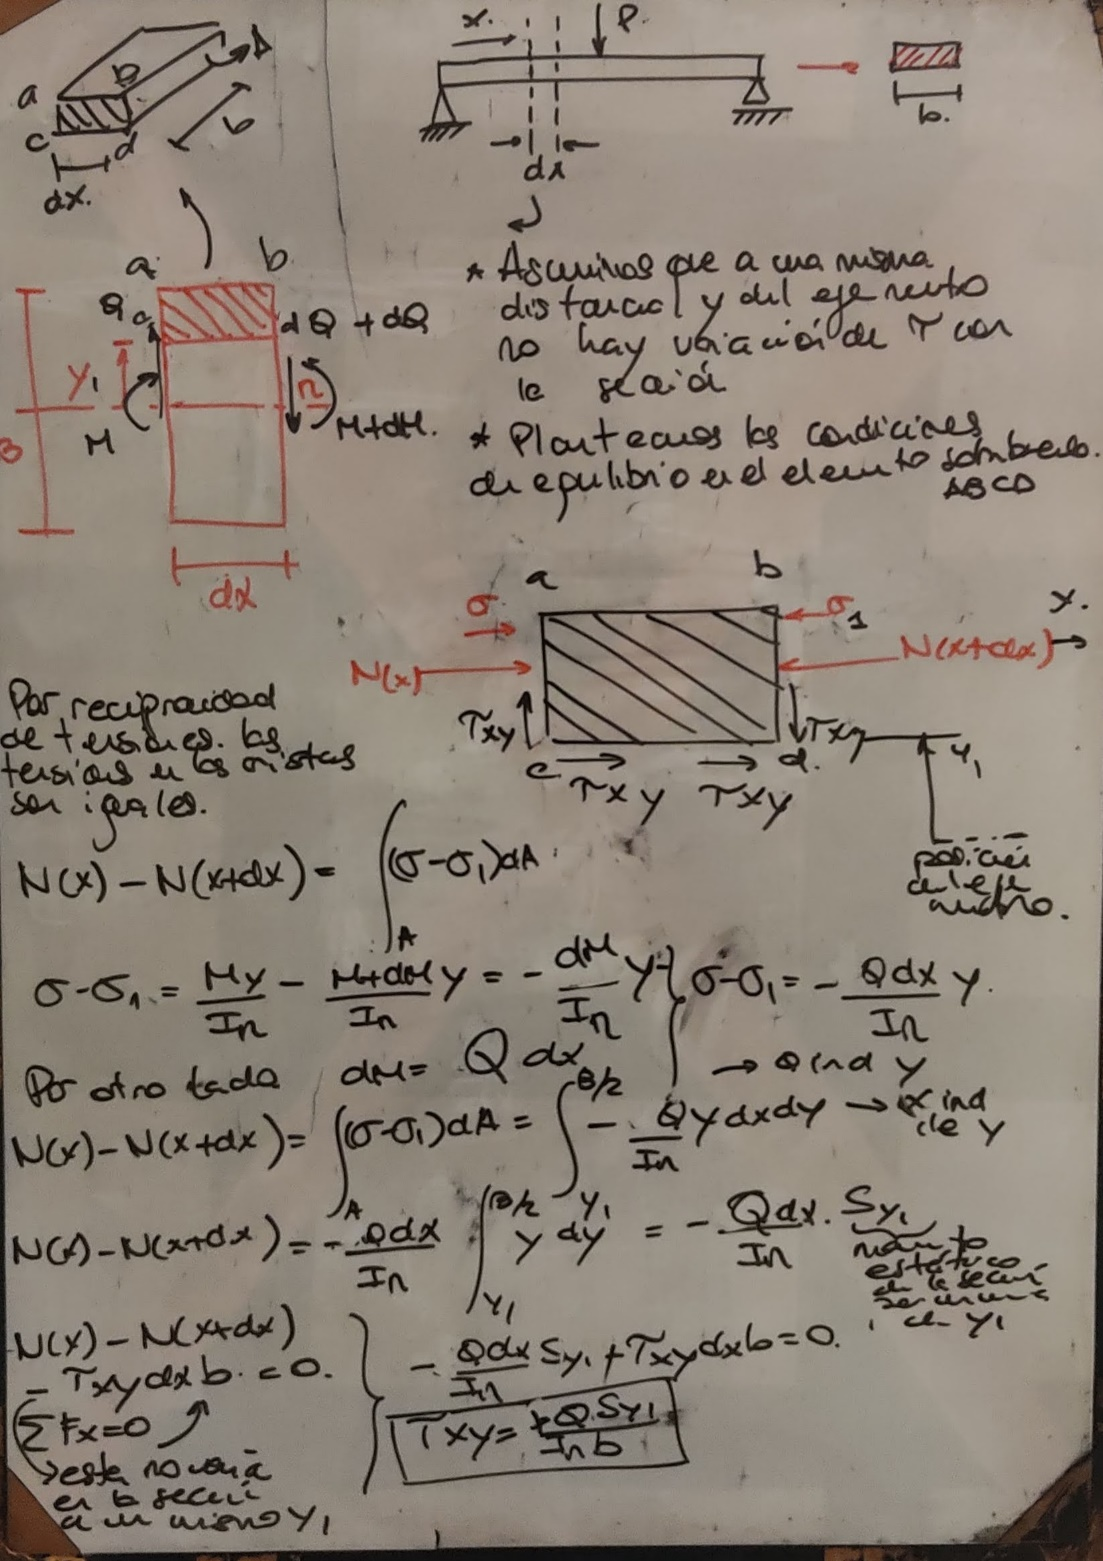 x.
P.
b
a
b
c
d
dx.
dx
b.
* Asumimos que a una misma
distancia y del eje neutro
no hay variación de τ con
la sección
* Planteamos las condiciones
de equilibrio en el elemento sombreado.
ABCD
a
b
Q
c
d Q + dQ
y₁
n
M
M+dM.
B
dx
a
b
σ
σ₁
x.
N(x)
N(x+dx)
τxy
τxy
c
d.
τxy
τxy
y₁
posición
del eje
neutro.
Por reciprocidad
de tensiones. las
tensiones en las aristas
son iguales.
N(x) – N(x+dx) = ∫_A (σ-σ₁)dA
σ-σ₁ = My/In – M+dM/In y = – dM/In y } σ-σ₁ = – Qdx/In y.
Por otro lado dM = Q dx
→ Q ind y
N(x) – N(x+dx) = ∫_A (σ-σ₁)dA = ∫_y₁^B/2 – Q/In y dx dy → x ind
de y
N(x) – N(x+dx) = – Qdx/In ∫_y₁^B/2 y dy = – Qdx/In . Sy₁
momento
estático
de la sección
de y₁
N(x) – N(x+dx)
– τxy dx b. = 0.
ΣFx=0
– Qdx/In Sy₁ + τxy dx b = 0.
τxy = + Q.Sy₁/In b
→ esta no varía
en la sección
a un mismo y₁